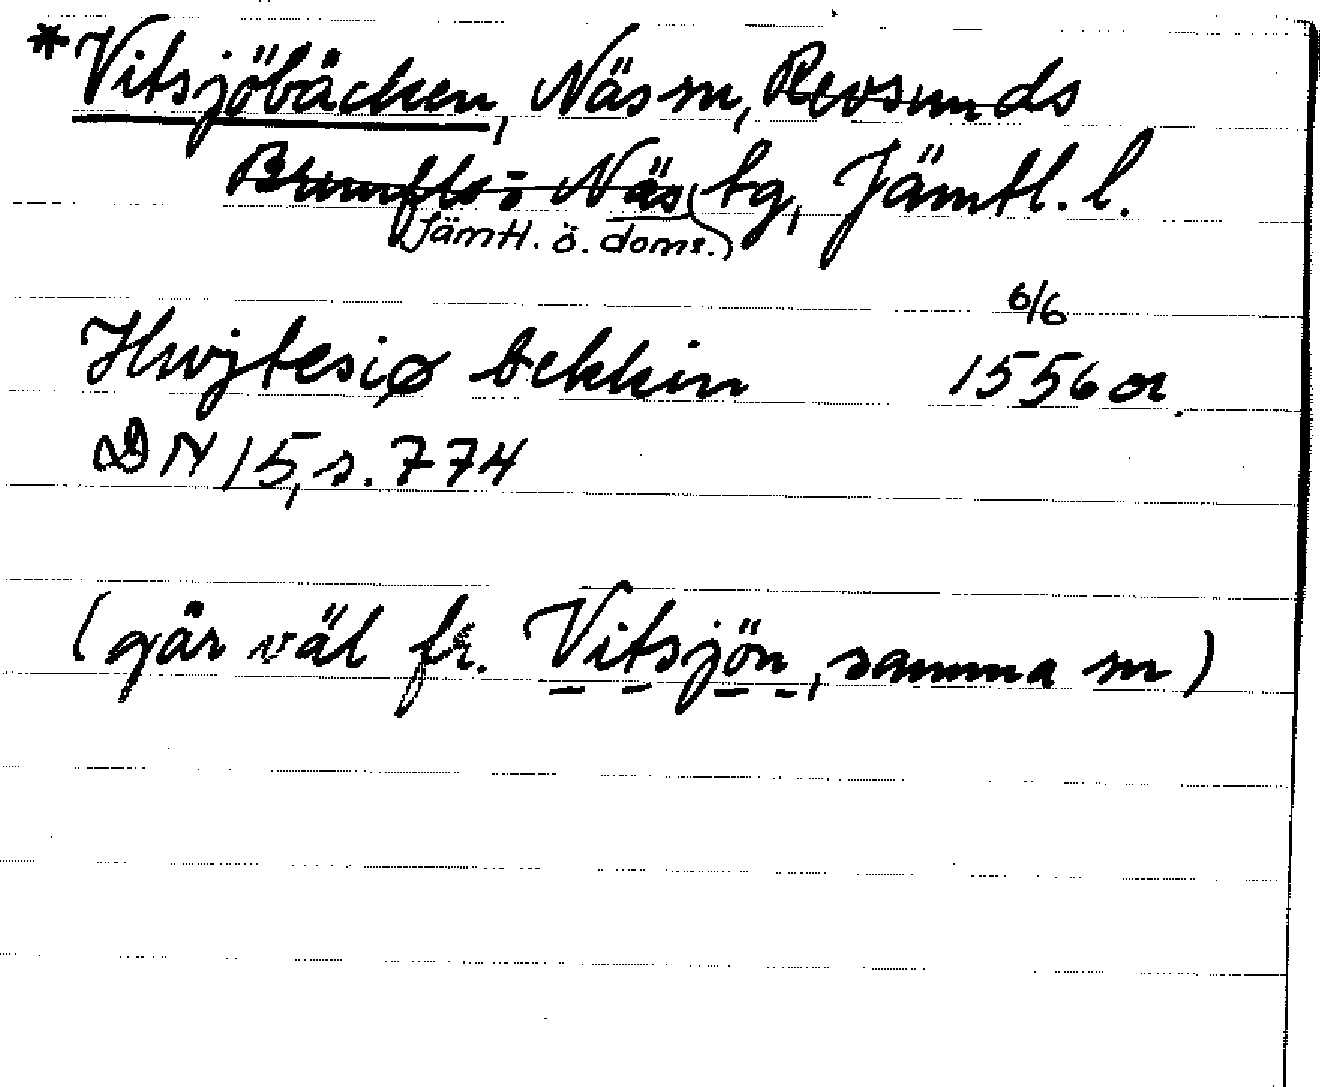 *Vitsjöbäcken, Näs sn, Revsunds
Brunflo-Näs tg, Jämtl. l.
(Jämtl. ö. doms.)
6/6
Hwjtesiø bekkin 1556 or.
DN 15, s. 774
(går väl fr. Vitsjön, samma sn)